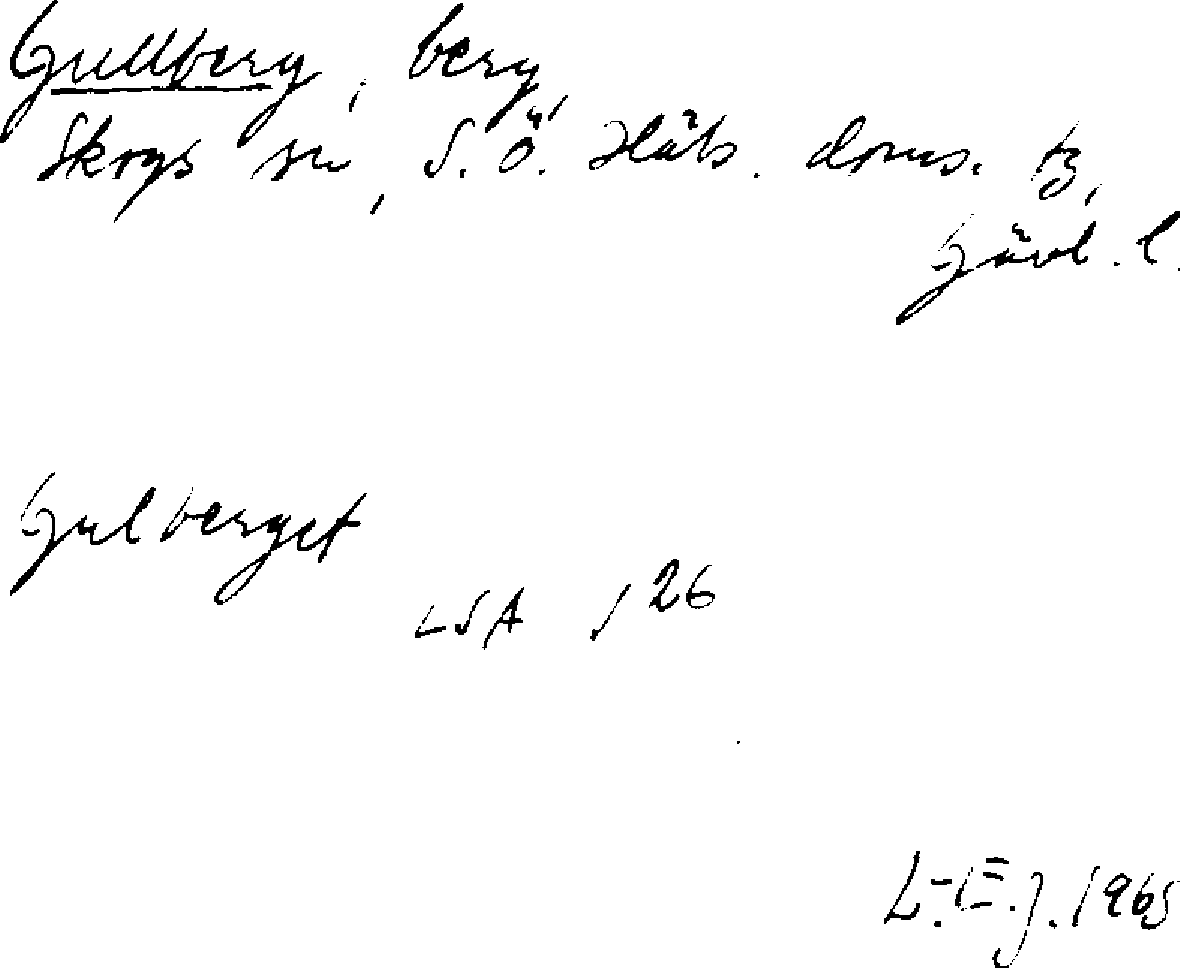 Gullberg, berg,
Skogs sn, S.Ö. Häls. doms. tg,
Gävl. l.
Gulberget
LSA S 26
L.-E. J. 1965